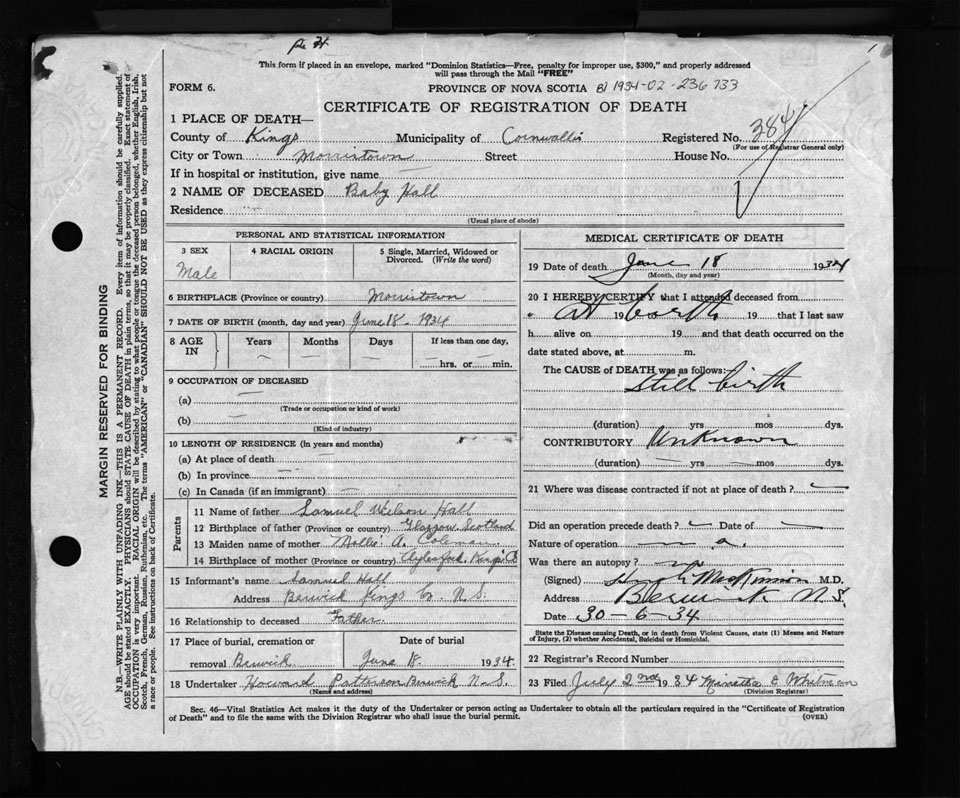 This form if placed in an envelope, marked "Dominion Statistics—Free, penalty for improper use, $300," and properly addressed
will pass through the Mail "FREE"
FORM 6. PROVINCE OF NOVA SCOTIA 1934-02-236733
CERTIFICATE OF REGISTRATION OF DEATH
1 PLACE OF DEATH—
County of Kings Municipality of Cornwallis Registered No. 384
(For use of Registrar General only)
City or Town Morristown Street House No.
If in hospital or institution, give name
2 NAME OF DECEASED Baby Hall
Residence
(Usual place of abode)
PERSONAL AND STATISTICAL INFORMATION
3 SEX 4 RACIAL ORIGIN 5 Single, Married, Widowed or
Divorced. (Write the word)
Male
6 BIRTHPLACE (Province or country) Morristown
7 DATE OF BIRTH (month, day and year) June 18 - 1934
8 AGE IN Years Months Days If less than one day,
hrs. or min.
9 OCCUPATION OF DECEASED
(a)
(Trade or occupation or kind of work)
(b)
(Kind of industry)
10 LENGTH OF RESIDENCE (in years and months)
(a) At place of death
(b) In province
(c) In Canada (if an immigrant)
Parents
11 Name of father Samuel Wilson Hall
12 Birthplace of father (Province or country) Glasgow Scotland
13 Maiden name of mother Mollie A. Coleman
14 Birthplace of mother (Province or country) Aylesford, Kings Co
15 Informant's name Samuel Hall
Address Berwick Kings Co. N.S.
16 Relationship to deceased Father
17 Place of burial, cremation or Date of burial
removal Berwick June 18 1934
18 Undertaker Howard Patterson Berwick N.S.
(Name and address)
MEDICAL CERTIFICATE OF DEATH
19 Date of death June 18 1934
(Month, day and year)
20 I HEREBY CERTIFY that I attended deceased from
At birth 19 19 that I last saw
h alive on 19 and that death occurred on the
date stated above, at m.
The CAUSE of DEATH was as follows:
Still birth
(duration) yrs mos dys.
CONTRIBUTORY Unknown
(duration) yrs mos dys.
21 Where was disease contracted if not at place of death?
Did an operation precede death? Date of
Nature of operation n.a.
Was there an autopsy?
(Signed) Hugh MacKinnon M.D.
Address Berwick N.S.
Date 30-6-34
State the Disease causing Death, or in death from Violent Causes, state (1) Means and Nature
of Injury, (2) whether Accidental, Suicidal or Homicidal.
22 Registrar's Record Number
23 Filed July 2nd 1934 Minetta E Whitman
(Division Registrar)
Sec. 46—Vital Statistics Act makes it the duty of the Undertaker or person acting as Undertaker to obtain all the particulars required in the "Certificate of Registration
of Death" and to file the same with the Division Registrar who shall issue the burial permit. (OVER)
MARGIN RESERVED FOR BINDING
N.B.—WRITE PLAINLY WITH UNFADING INK—THIS IS A PERMANENT RECORD. Every item of information should be carefully supplied.
AGE should be stated EXACTLY. PHYSICIANS should STATE CAUSE OF DEATH in plain terms, so that it may be properly classified. Exact statement of
OCCUPATION is very important. RACIAL ORIGIN will be described by stating to what people or tongue the deceased person belonged, whether English, Irish,
Scotch, French, German, Russian, Ruthenian, etc. The terms "AMERICAN" or "CANADIAN" SHOULD NOT BE USED as they express citizenship but not
a race or people. See instructions on back of Certificate.